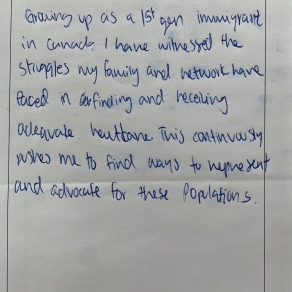 Growing up as a 1st gen immigrant
in Canada, I have witnessed the
struggles my family and network have
faced in finding and receiving
adequate healthcare. This continuously
pushes me to find ways to represent
and advocate for these populations.